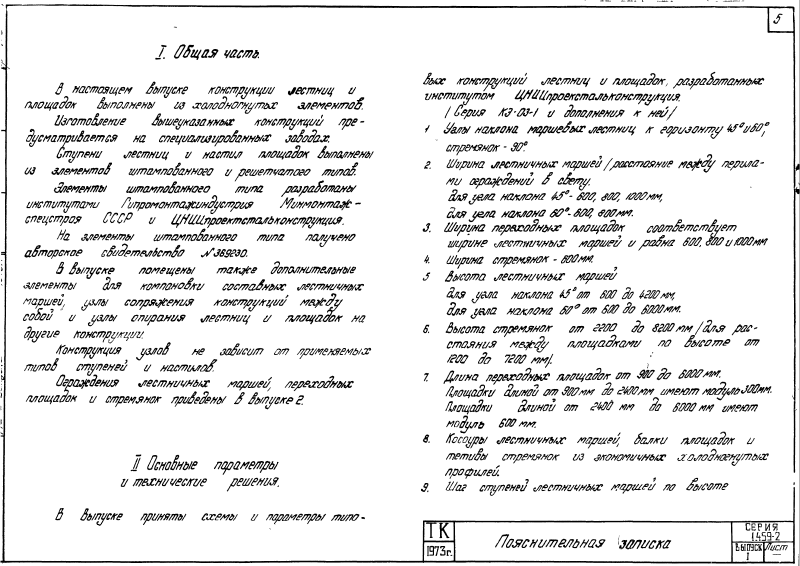 5
I. Общая часть.
В настоящем выпуске конструкции лестниц и
площадок выполнены из холодногнутых элементов.
Изготовление вышеуказанных конструкций пре-
дусматривается на специализированных заводах.
Ступени лестниц и настил площадок выполнены
из элементов штампованного и решетчатого типов.
Элементы штампованного типа разработаны
институтами Гипромонтажиндустрия Минмонтаж-
спецстроя СССР и ЦНИИпроектстальконструкция.
На элементы штампованного типа получено
авторское свидетельство №369230.
В выпуске помещены также дополнительные
элементы для компоновки составных лестничных
маршей, узлы сопряжения конструкций между
собой и узлы опирания лестниц и площадок на
другие конструкции.
Конструкция узлов не зависит от применяемых
типов ступеней и настилов.
Ограждения лестничных маршей, переходных
площадок и стремянок приведены в выпуске 2.
II Основные параметры
и технические решения.
В выпуске приняты схемы и параметры типо-
вых конструкций лестниц и площадок, разработанных
институтом ЦНИИпроектстальконструкция.
/Серия КЭ-03-1 и дополнения к ней/
1 Углы наклона маршевых лестниц к горизонту 45° и 60°,
стремянок - 90°
2. Ширина лестничных маршей /расстояние между перила-
ми ограждений в свету.
для угла наклона 45°- 600, 800, 1000мм,
для угла наклона 60°- 600, 800мм.
3. Ширина переходных площадок соответствует
ширине лестничных маршей и равна 600, 800 и 1000мм
4. Ширина стремянок - 600мм.
5 Высота лестничных маршей
для угла наклона 45° от 600 до 4200мм,
для угла наклона 60° от 600 до 6000мм.
6. Высота стремянок от 2200 до 8200мм /для рас-
стояния между площадками по высоте от
1200 до 7200 мм/.
7. Длина переходных площадок от 900 до 6000мм.
Площадки длиной от 900мм до 2400мм имеют модуль 300мм.
Площадки длиной от 2400 мм до 6000мм имеют
модуль 600мм.
8. Косоуры лестничных маршей, балки площадок и
тетивы стремянок из экономичных холодногнутых
профилей.
9. Шаг ступеней лестничных маршей по высоте
ТК
1973г.
Пояснительная записка
СЕРИЯ
1.459-2
Выпуск 1
Лист —